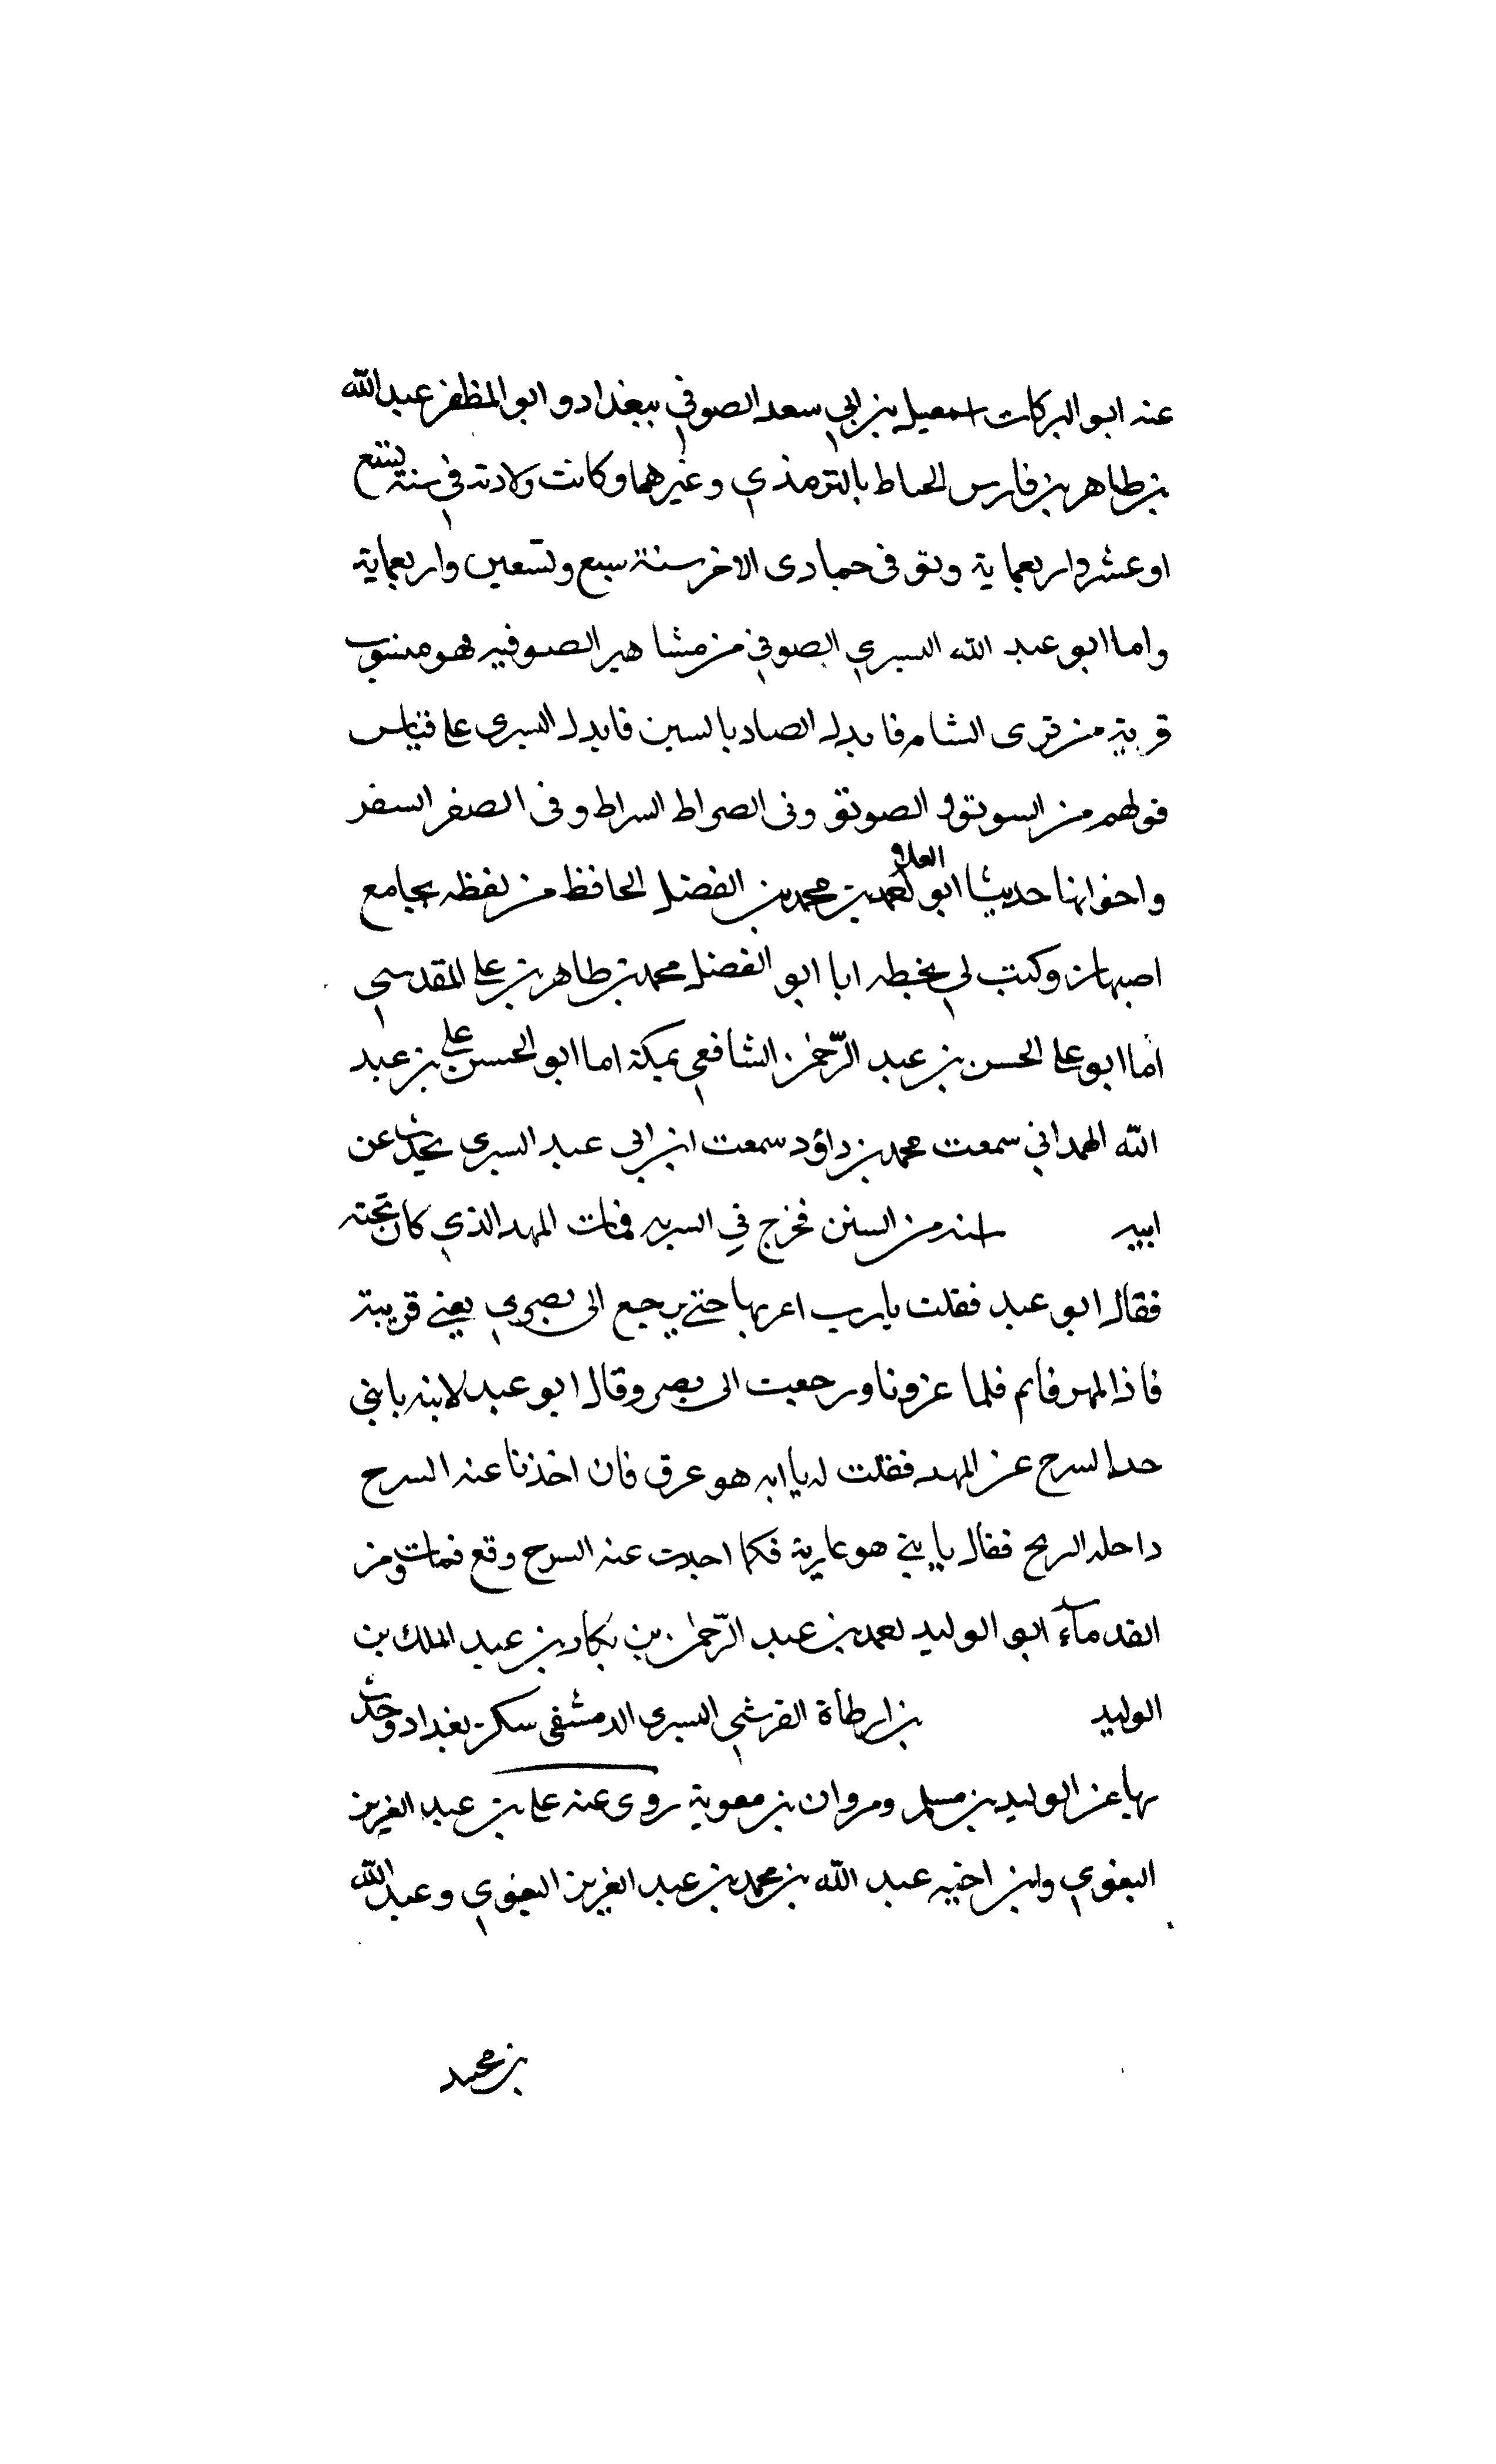 عنه ابو البركات اسمعيل بن ابي سعد الصوفي ببغداد و ابو المظفر عبد الله
بن طاهر بن فارس الحياط بالترمذي وغيرهما وكانت ولادته في سنة تسع
او عشر واربعماية وتوفى فى جمادى الاخر سنة سبع وتسعين واربعماية
واما ابو عبد الله البسري الصوفي من مشاهير الصوفيه فهو منسوب
قرية من قرى الشام فابدل الصاد بالسين فابدل البسرى على قياس
قولهم من السويق الصويق وفى الصراط السراط وفى الصقر السقر
واخواتها حديثنا ابو العلا احمد بن محمد بن الفضل الحافظ من لفظه بجامع
اصبهان وكتب لي بخطه ابا ابو الفضل محمد بن طاهر بن على المقدسي
اما ابو على الحسن بن عبد الرحمن الشافعي بمكة اما ابو الحسن على بن عبد
الله الهمداني سمعت محمد بن داؤد سمعت ابن ابى عبد البسرى يحدث عن
ابيه سنه من السنن فخرج في السريه فمات المهد الذي كان تحته
فقال ابو عبد فقلت يارب اعربها حتى يرجع الى بصرى يعنى قريته
فاذا المهر قائم فلما غزونا ورجعت الى بصر وقال ابو عبد لابنه بابنى
حد السرج عن المهد فقلت له يا ابه هو عرق فان اخذنا عنه السرح
داخله الريح فقال يا بنى هو عارية فكما احدت عنه السرج وقع فمات ومن
القدماء ابو الوليد احمد بن عبد الرحمن بن بكار بن عبد الملك بن
الوليد بن ارطأة القرشي البسرى الدمشقى سكن بغداد وحدث
بها عن الوليد بن مسلم ومروان بن معوية روى عنه على بن عبد العزيز
البغوي وابن اخيه عبد الله بن محمد بن عبد العزيز البغوي وعبد الله
بن محمد